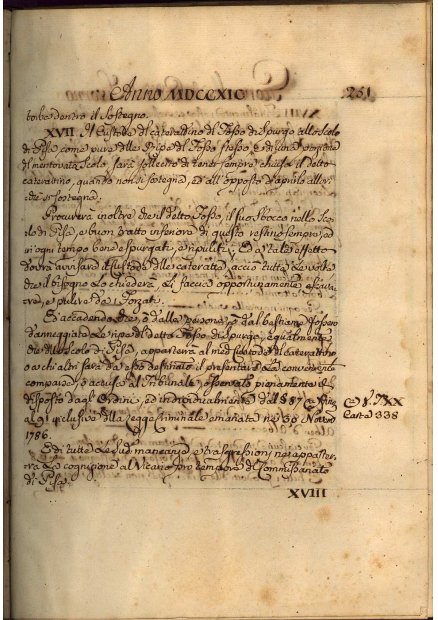 Anno MDCCXIC
251
torbe dentro il Sostegno.
XVII Il Custode di cateratino del Fosso di spurgo allo Scolo
di Pisa come pure delle Ripe del Fosso stesso, e di una porzione
di mentovato Scolo, sarà sollecito di tener sempre chiusa il detto
cateratino, quanto non si sostegna, ed all'opposto d'aprirlo allor
che si sostegna.
Procurerà inoltre che il detto Fosso, il suo sbocco nello Sco
lo di Pisa, e buon tratto inferiore di questo restino sempre, ed
in ogni tempo bene espurgati, e ripuliti; Ed a tale effetto
dovrà avvisare il Custode delle cateratte, acciò tutte le volte
che il bisogno lo chiederà, li faccia opportunamente escava
re, e pulire da i Forzati.
Et accadendo che ò dalle persone, ò dal bestiame fossero
danneggiate le ripe del detto Fosso di spurgo, egualmente
che dello Scolo di Pisa, apparterrà al med.
o a chi altri sarà a ciò destinato il presentarne la conveniente
comparsa, ò accusa al Tribunale, osservato pienamente il
disposto dagli Ordini, ed individualmente dal § 87
al 91 inclusive della legge criminale emanata ne' 30 Novembre
1786.
E di tutte le sud. mancanze, e trasgressioni, ne apparter
rà la cognizione al Vicario pro tempore del Commissariato
di Pisa.
C. § IXX
Carta 338
XVIII